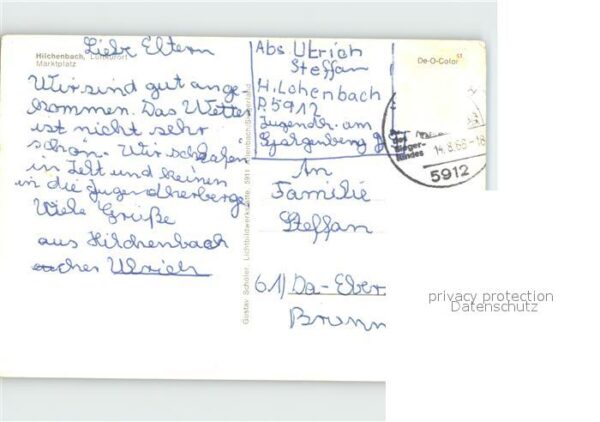 Hilchenbach, Luftkurort
Marktplatz
Liebe Eltern
Wir sind gut ange-
kommen. Das Wetter
ist nicht sehr
schön. Wir schlafen
in Zelt und keinen
in die Jugendherberge
Viele Grüße
aus Hilchenbach
Ulrich
Gustav Schöler, Lichtbildwerkstätte, 5911 Allenbach/Siegerland
Abs Ulrich
Steffan
Hilchenbach
P.5912
Jugendh. am
De-O-Color
14.8.68-18
5912
An
Familie
Steffan
61) Da-Eber
Brunn
privacy protection
Datenschutz